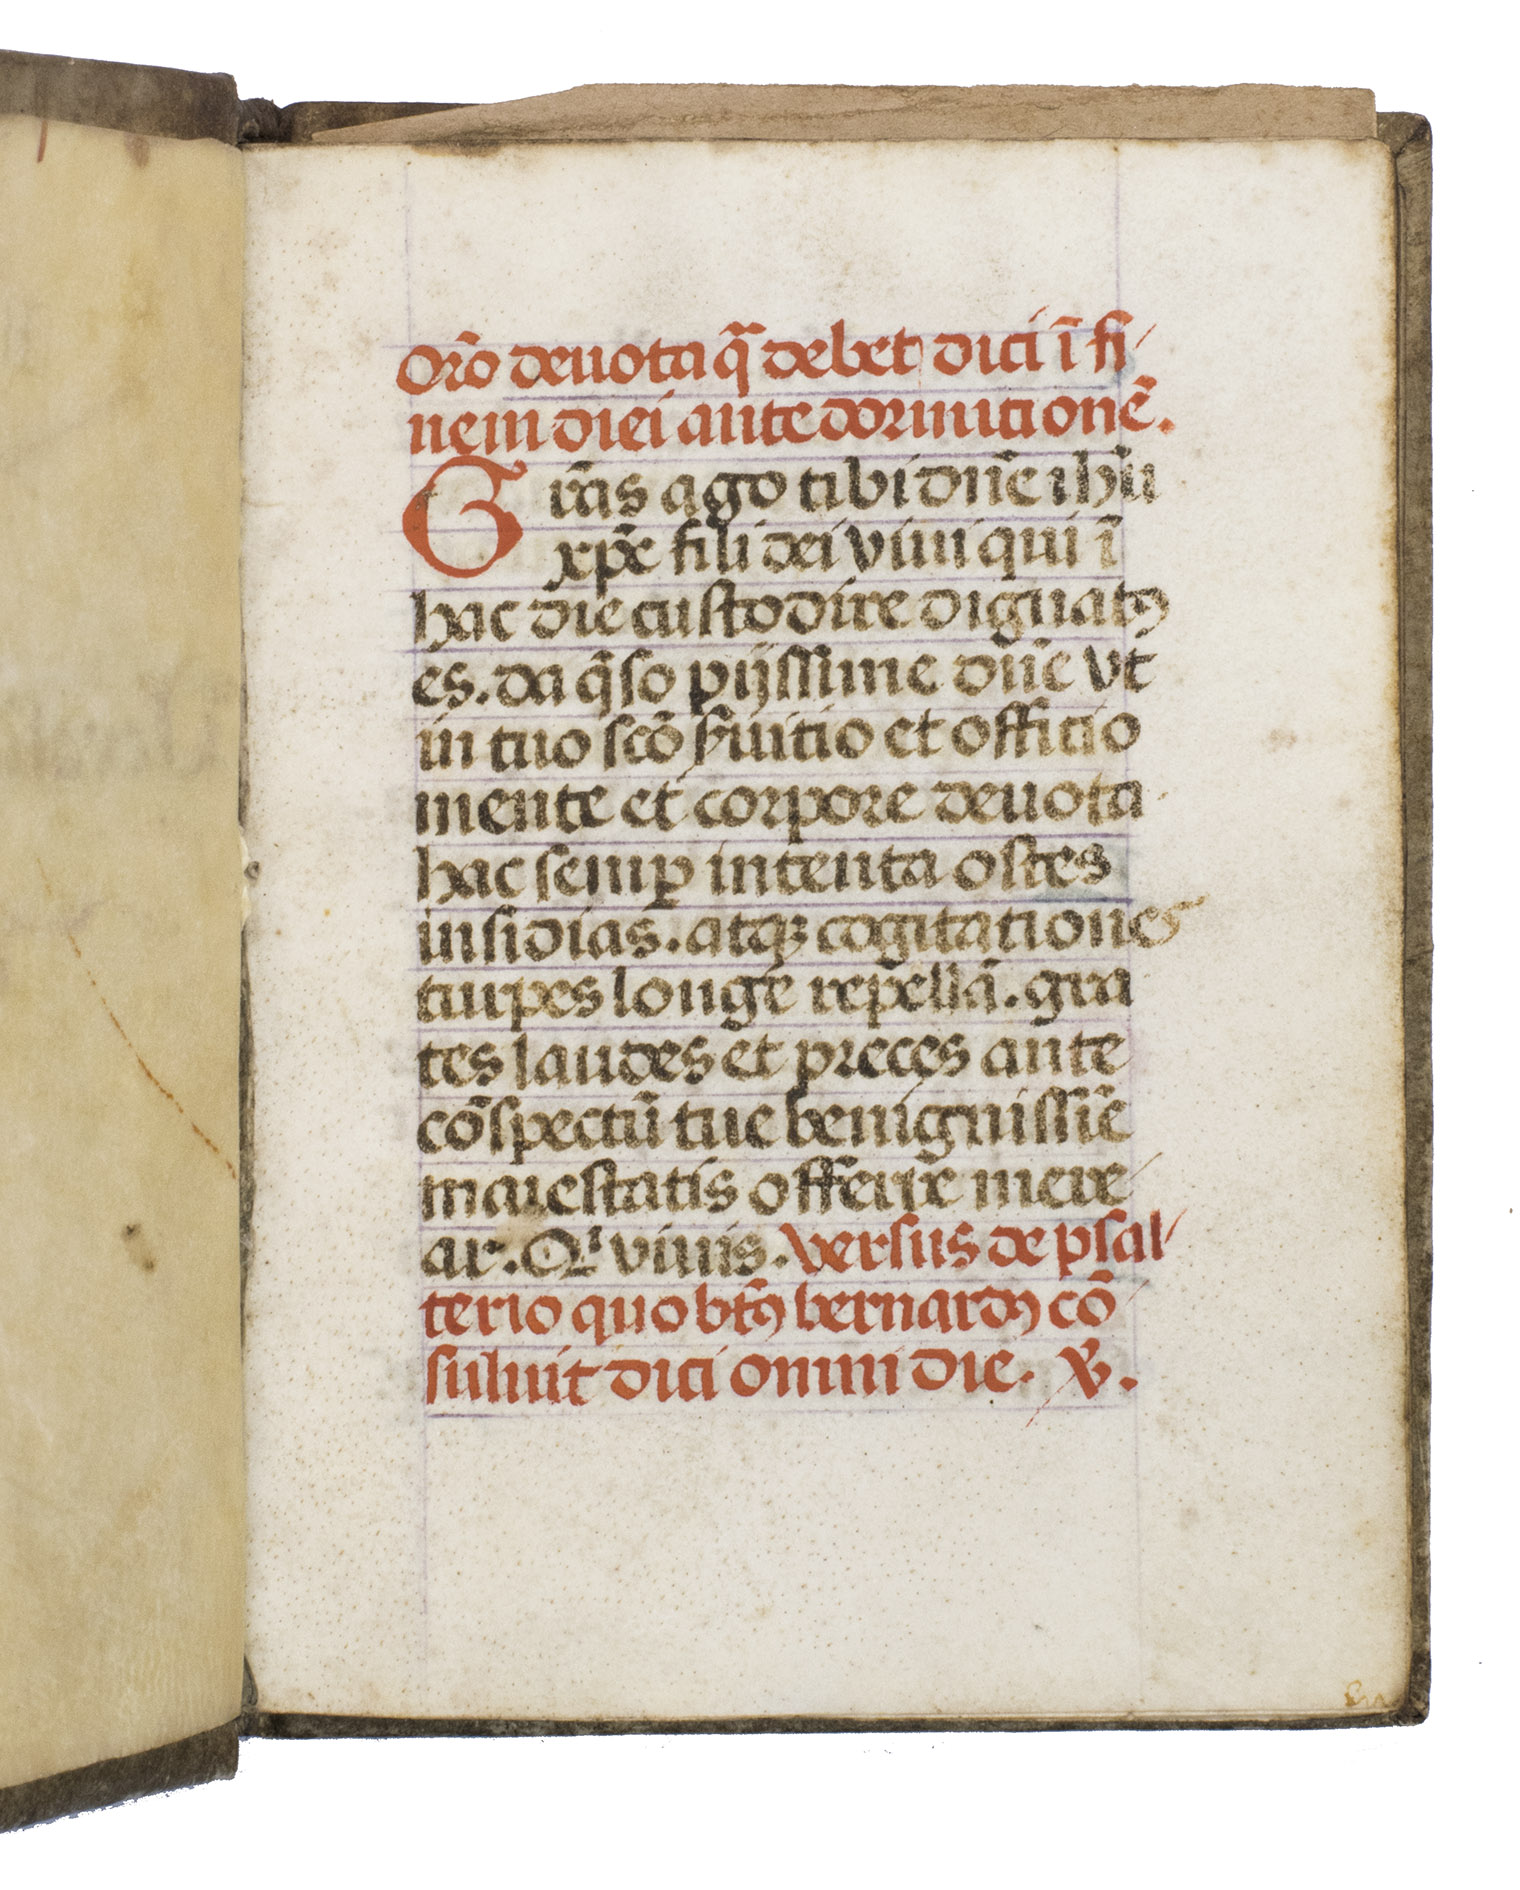 Orõ deuota q̃ debet dici ĩ fi/
nem diei ante dormitionẽ.
Grãs ago tibi dñe ihũ
xp̃e fili dei viui qui ĩ
hac die custodire dignatꝰ
es. da q̃so pijssime dñe vt
in tuo scõ s̃uitio et officio
mente et corpore deuota
hac semꝑ intenta ostes
insidias. atqꝫ cogitationes
turpes longe repellã. gra
tes laudes et preces ante
cõspectũ tue benignissĩe
maiestatis offerre mere/
ar. Qⁱ viuis. versus de psal/
terio quo btꝰ bernardꝰ cõ
suluit dici omni die. ℣.